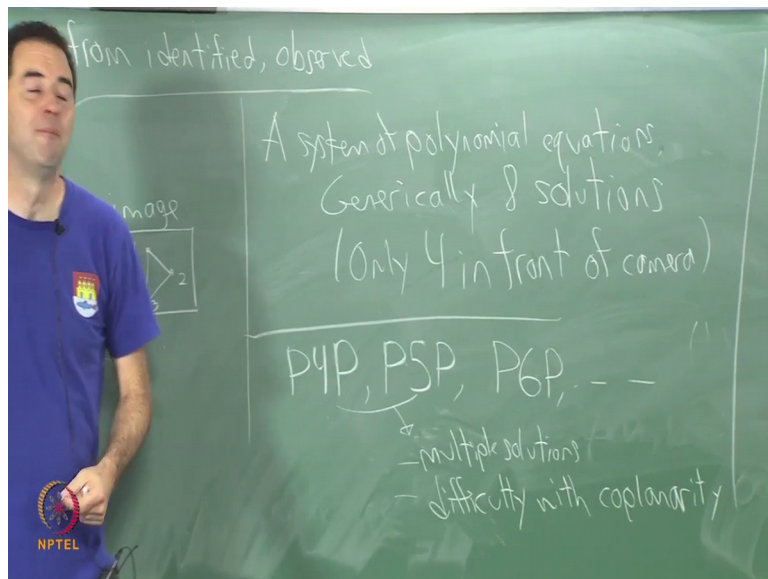 from identified, observed
image
2
3
A system of polynomial equations.
Generically 8 solutions
(Only 4 in front of camera)
P4P, P5P, P6P, - -
- multiple solutions
- difficulty with coplanarity
NPTEL